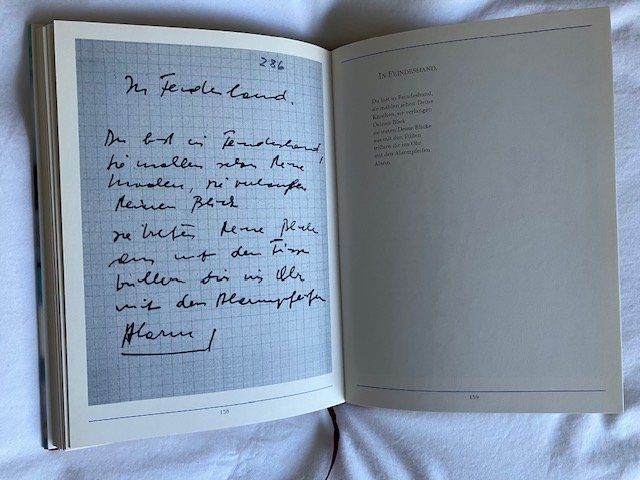 286
In Feindeshand.
Du bist in Feindeshand,
sie mahlen schon Deine
Knochen, sie verlangen
Deinen Blick
sie treten Deine Blicke
aus mit den Füssen
trillern dir ins Ohr
mit den Alarmpfeifen
Alarm!
158
IN FEINDESHAND.
Du bist in Feindeshand,
sie mahlen schon Deine
Knochen, sie verlangen
Deinen Blick
sie treten Deine Blicke
aus mit den Füßen
trillern dir ins Ohr
mit den Alarmpfeifen
Alarm.
159